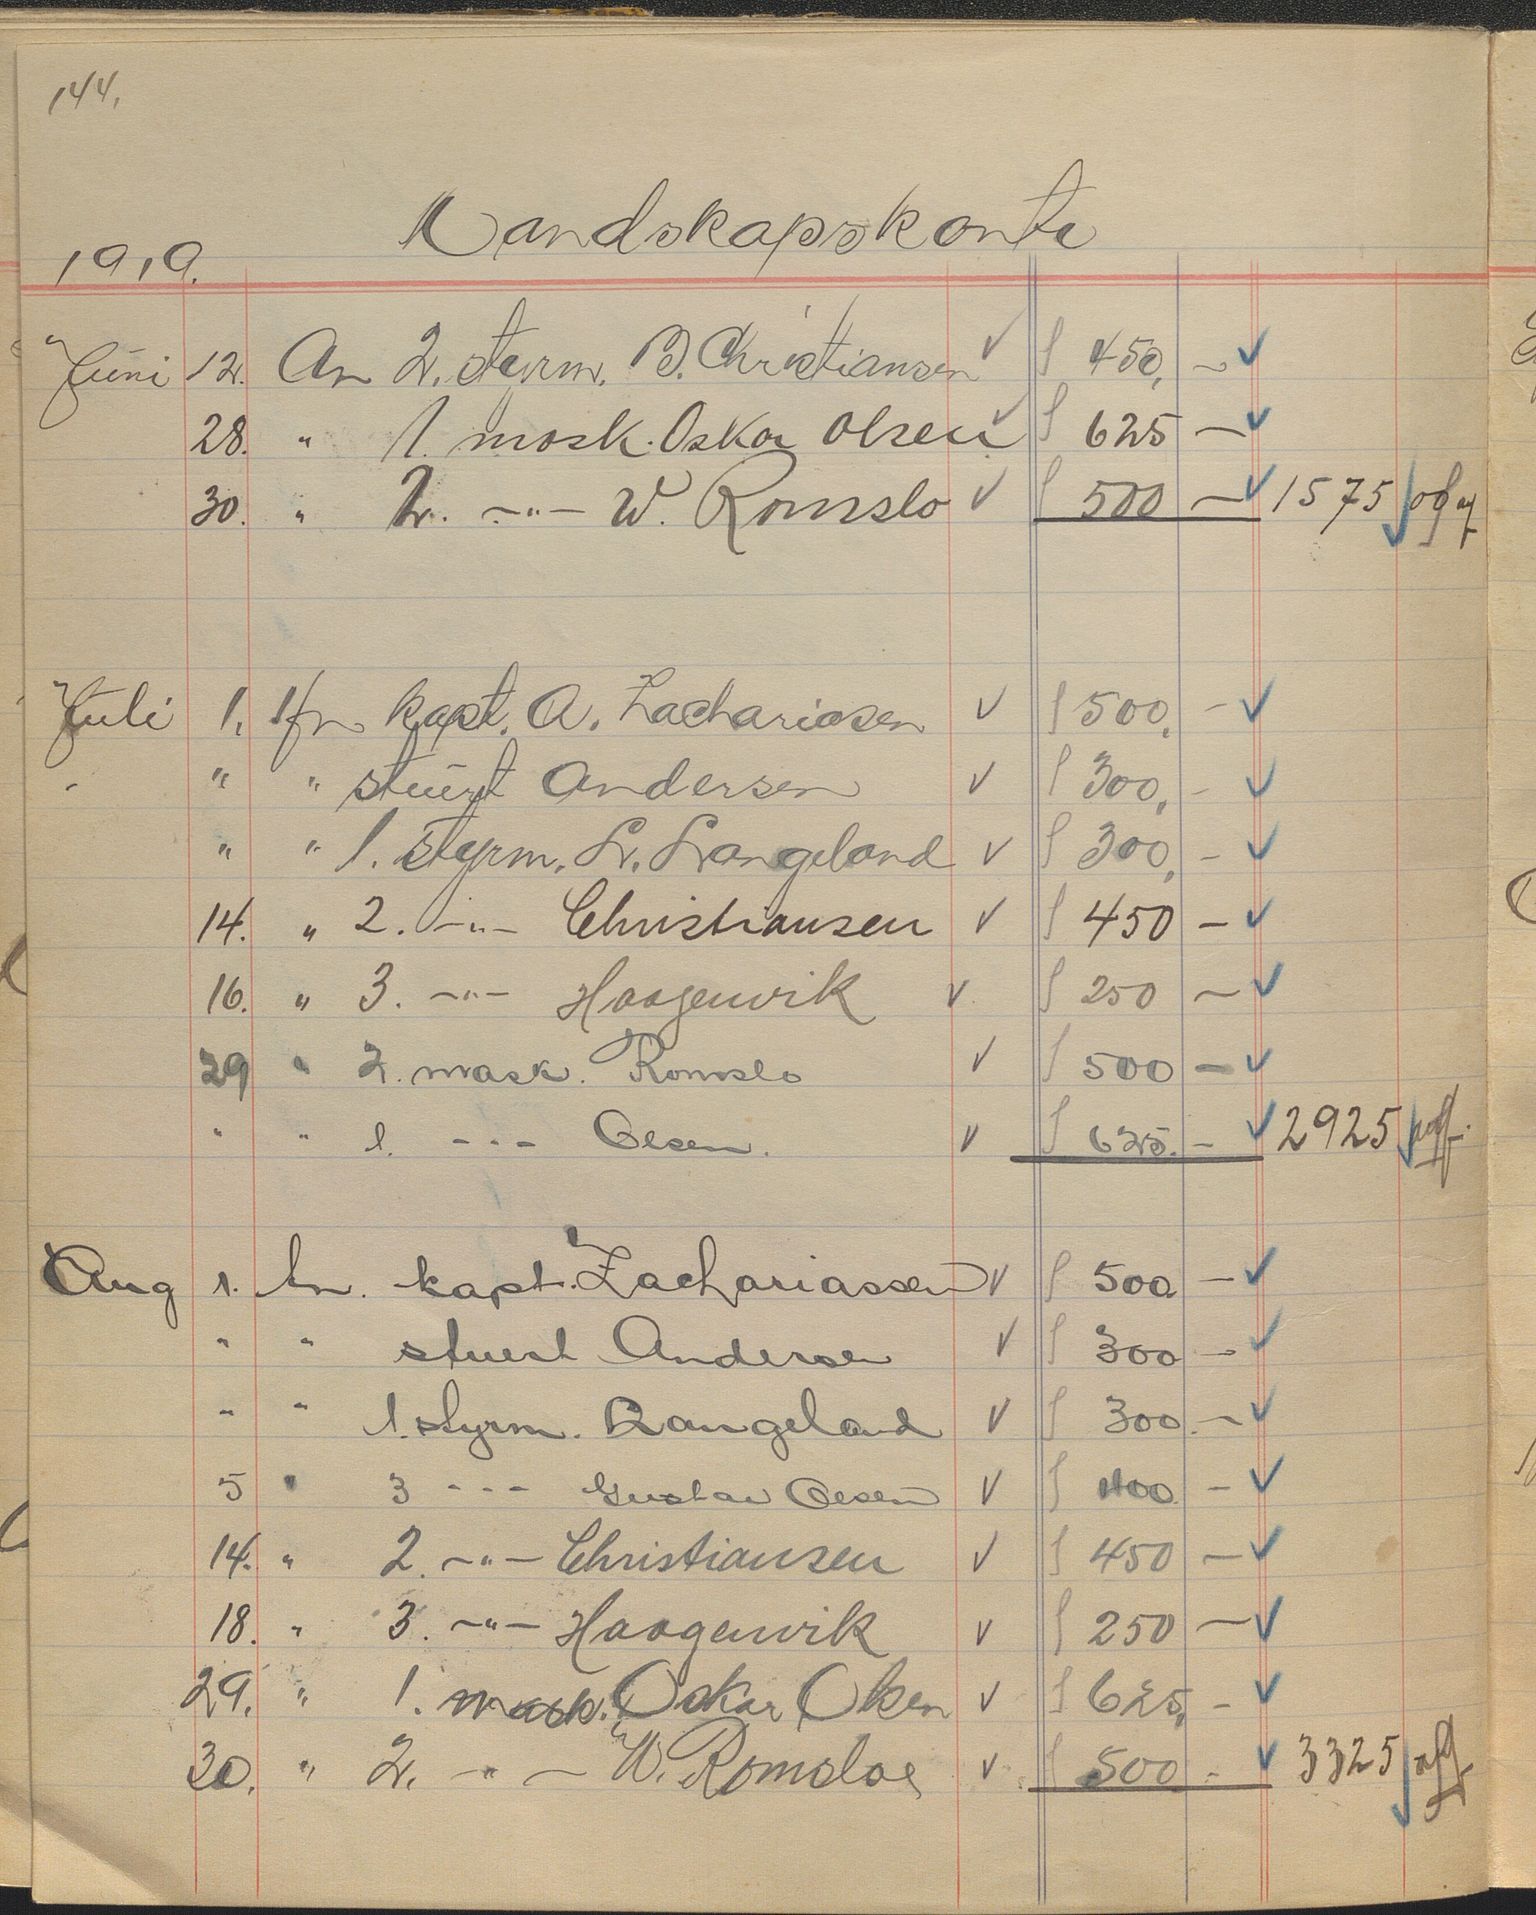 144.
Mandskapskonto
1919.
Juni 12. An 2. styrm. B. Christiansen ✓ 450, — ✓
28. " 1. mask. Oskar Olsen ✓ 625 — ✓
30. " 2. —"— W. Romslo ✓ 500 — ✓ 1575
Juli 1. An kapt. A. Zachariasen ✓ 500, - ✓
" " stuert Andersen ✓ 300, - ✓
" " 1. styrm. L. Langeland ✓ 300, - ✓
14. " 2. —"— Christiansen ✓ 450 — ✓
16. " 3. —"— Haagenvik ✓ 250 — ✓
29 " 2. mask. Romslo ✓ 500 — ✓
" " 1. -"- Olsen. ✓ 625. - ✓ 2925
Aug 1. An. kapt. Zachariassen ✓ 500 — ✓
" " stuert Andersen ✓ 300 — ✓
" " 1. styrm. Langeland ✓ 300. — ✓
5 " 3 -"- Gustav Olsen ✓ 400 — ✓
14. " 2. —"— Christiansen ✓ 450 — ✓
18. " 3. —"— Haagenvik ✓ 250 — ✓
29. " 1. mask. Oskar Olsen ✓ 625, - ✓
30. " 2. —"— W. Romsloe ✓ 500 - ✓ 3325